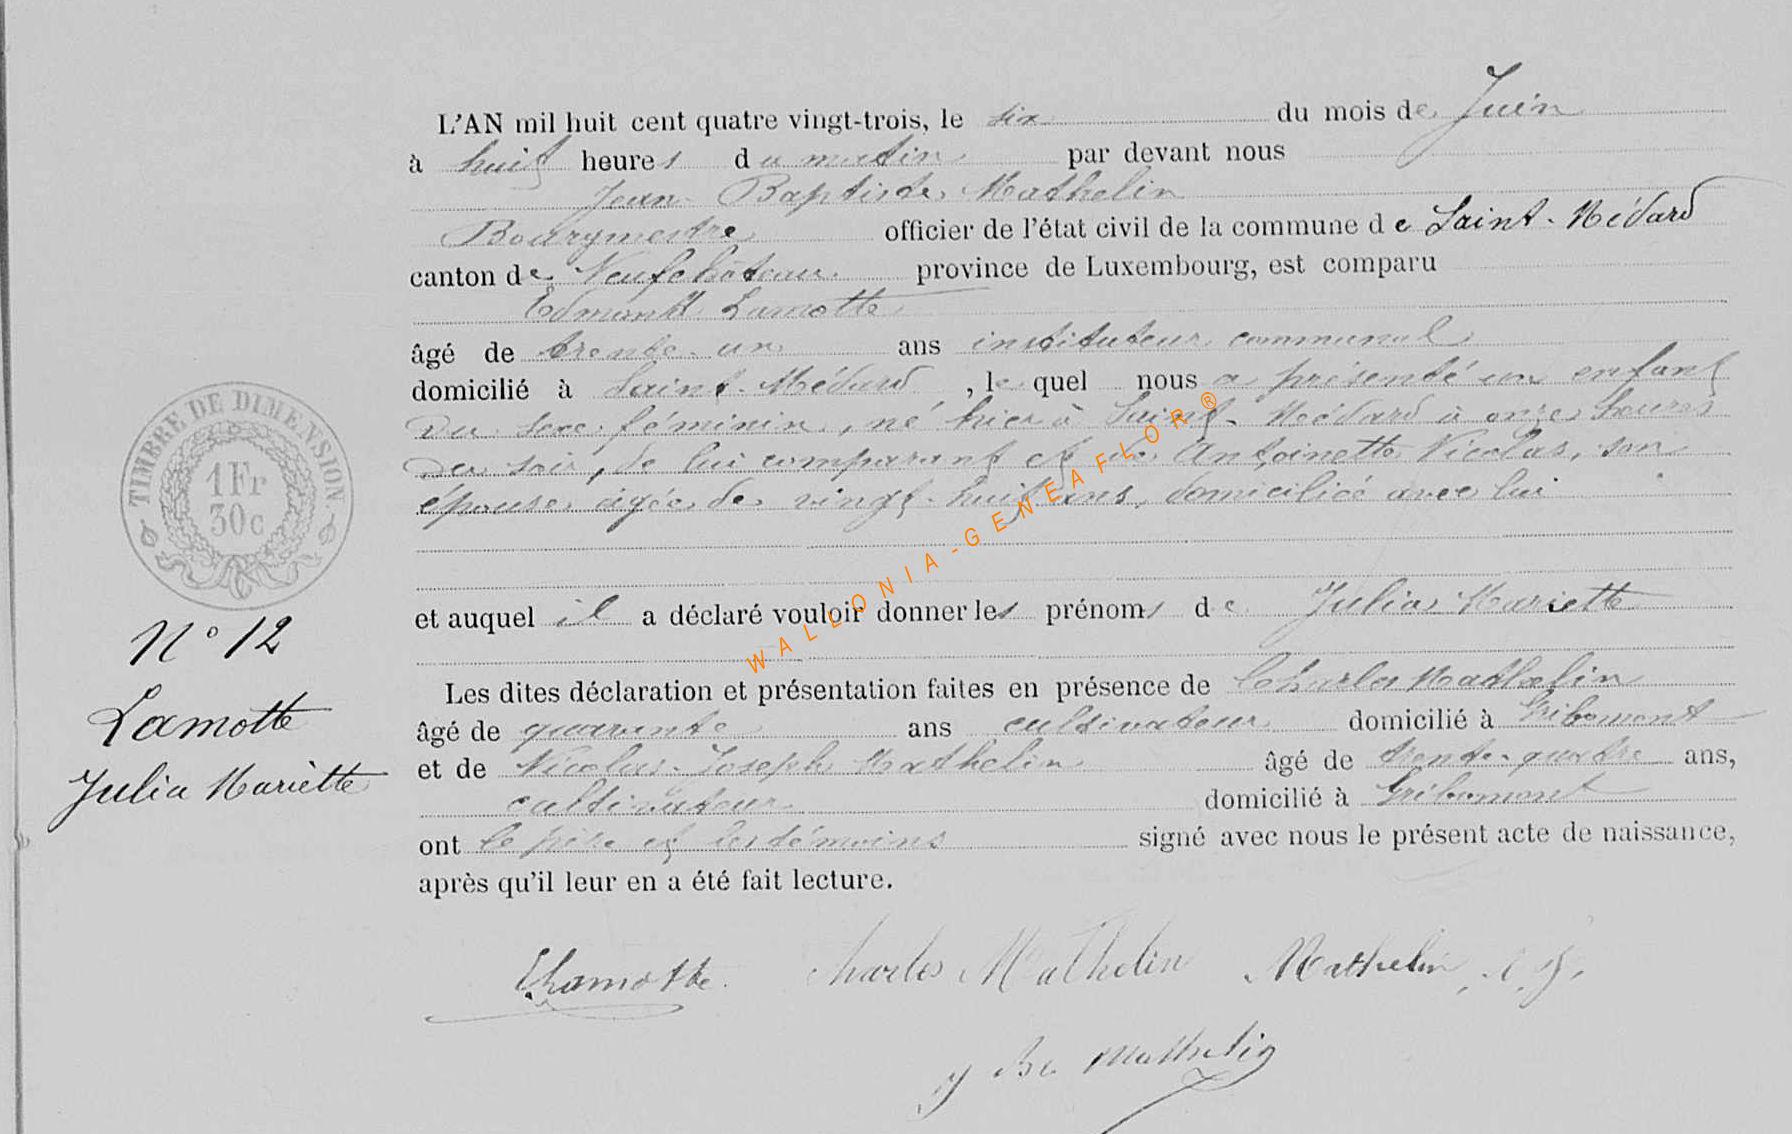 L'AN mil huit cent quatre vingt-trois, le six du mois de Juin
à huit heures du matin par devant nous
Jean Baptiste Mathelin
Bourgmestre officier de l'état civil de la commune de Saint-Médard
canton de Neufchâteau province de Luxembourg, est comparu
Edmond Lamotte
âgé de trente-un ans instituteur communal
domicilié à Saint-Médard, lequel nous a présenté un enfant
du sexe féminin, né hier à Saint-Médard à onze heures
du soir, de lui comparant et de Antoinette Nicolas, son
épouse, âgée de vingt-huit ans, domiciliée avec lui
et auquel il a déclaré vouloir donner les prénoms de Julia Mariette
Les dites déclaration et présentation faites en présence de Charles Mathelin
âgé de quarante ans cultivateur domicilié à Gribomont
et de Nicolas-Joseph Mathelin âgé de trente-quatre ans,
cultivateur domicilié à Gribomont
ont le père et les témoins signé avec nous le présent acte de naissance,
après qu'il leur en a été fait lecture.
TIMBRE DE DIMENSION
1 Fr
30c
N° 12
Lamotte
Julia Mariètte
ELamotte.
Charles Mathelin
Mathelin, N. J.
J Bte Mathelin
WALLONIA-GENEAFLOR®